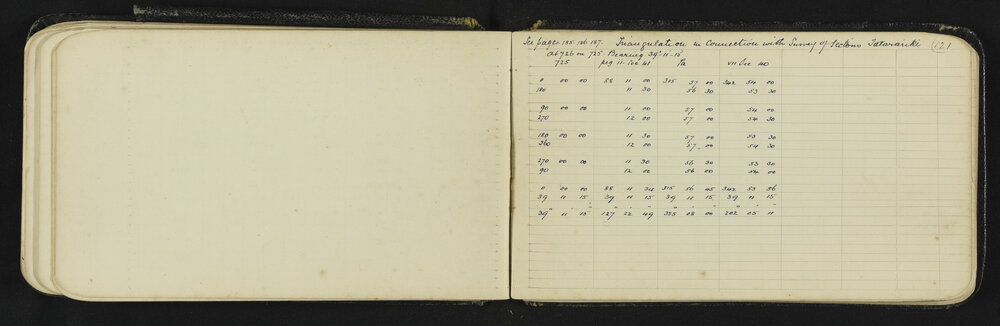 See pages 185.186.187. Triangulation in Connection with Survey of Sections Tatarariki 121
At 726 on 725 Bearing 39°-11'-15"
725 peg 11 Sec 41 Ta VII Sec 40
0 00 00 58 11 00 315 57 00 342 54 00
180 11 30 56 30 53 30
90 00 00 11 00 57 00 54 00
270 12 00 57 00 54 30
180 00 00 11 30 57 00 53 30
360 12 00 57 00 54 30
270 00 00 11 30 56 30 53 30
90 12 00 56 00 54 00
0 00 00 88 11 34 315 56 45 342 53 56
39 11 15 39 11 15 39 11 15 39 11 15
39° 11' 15" 127 22 49 355 08 00 202 05 11